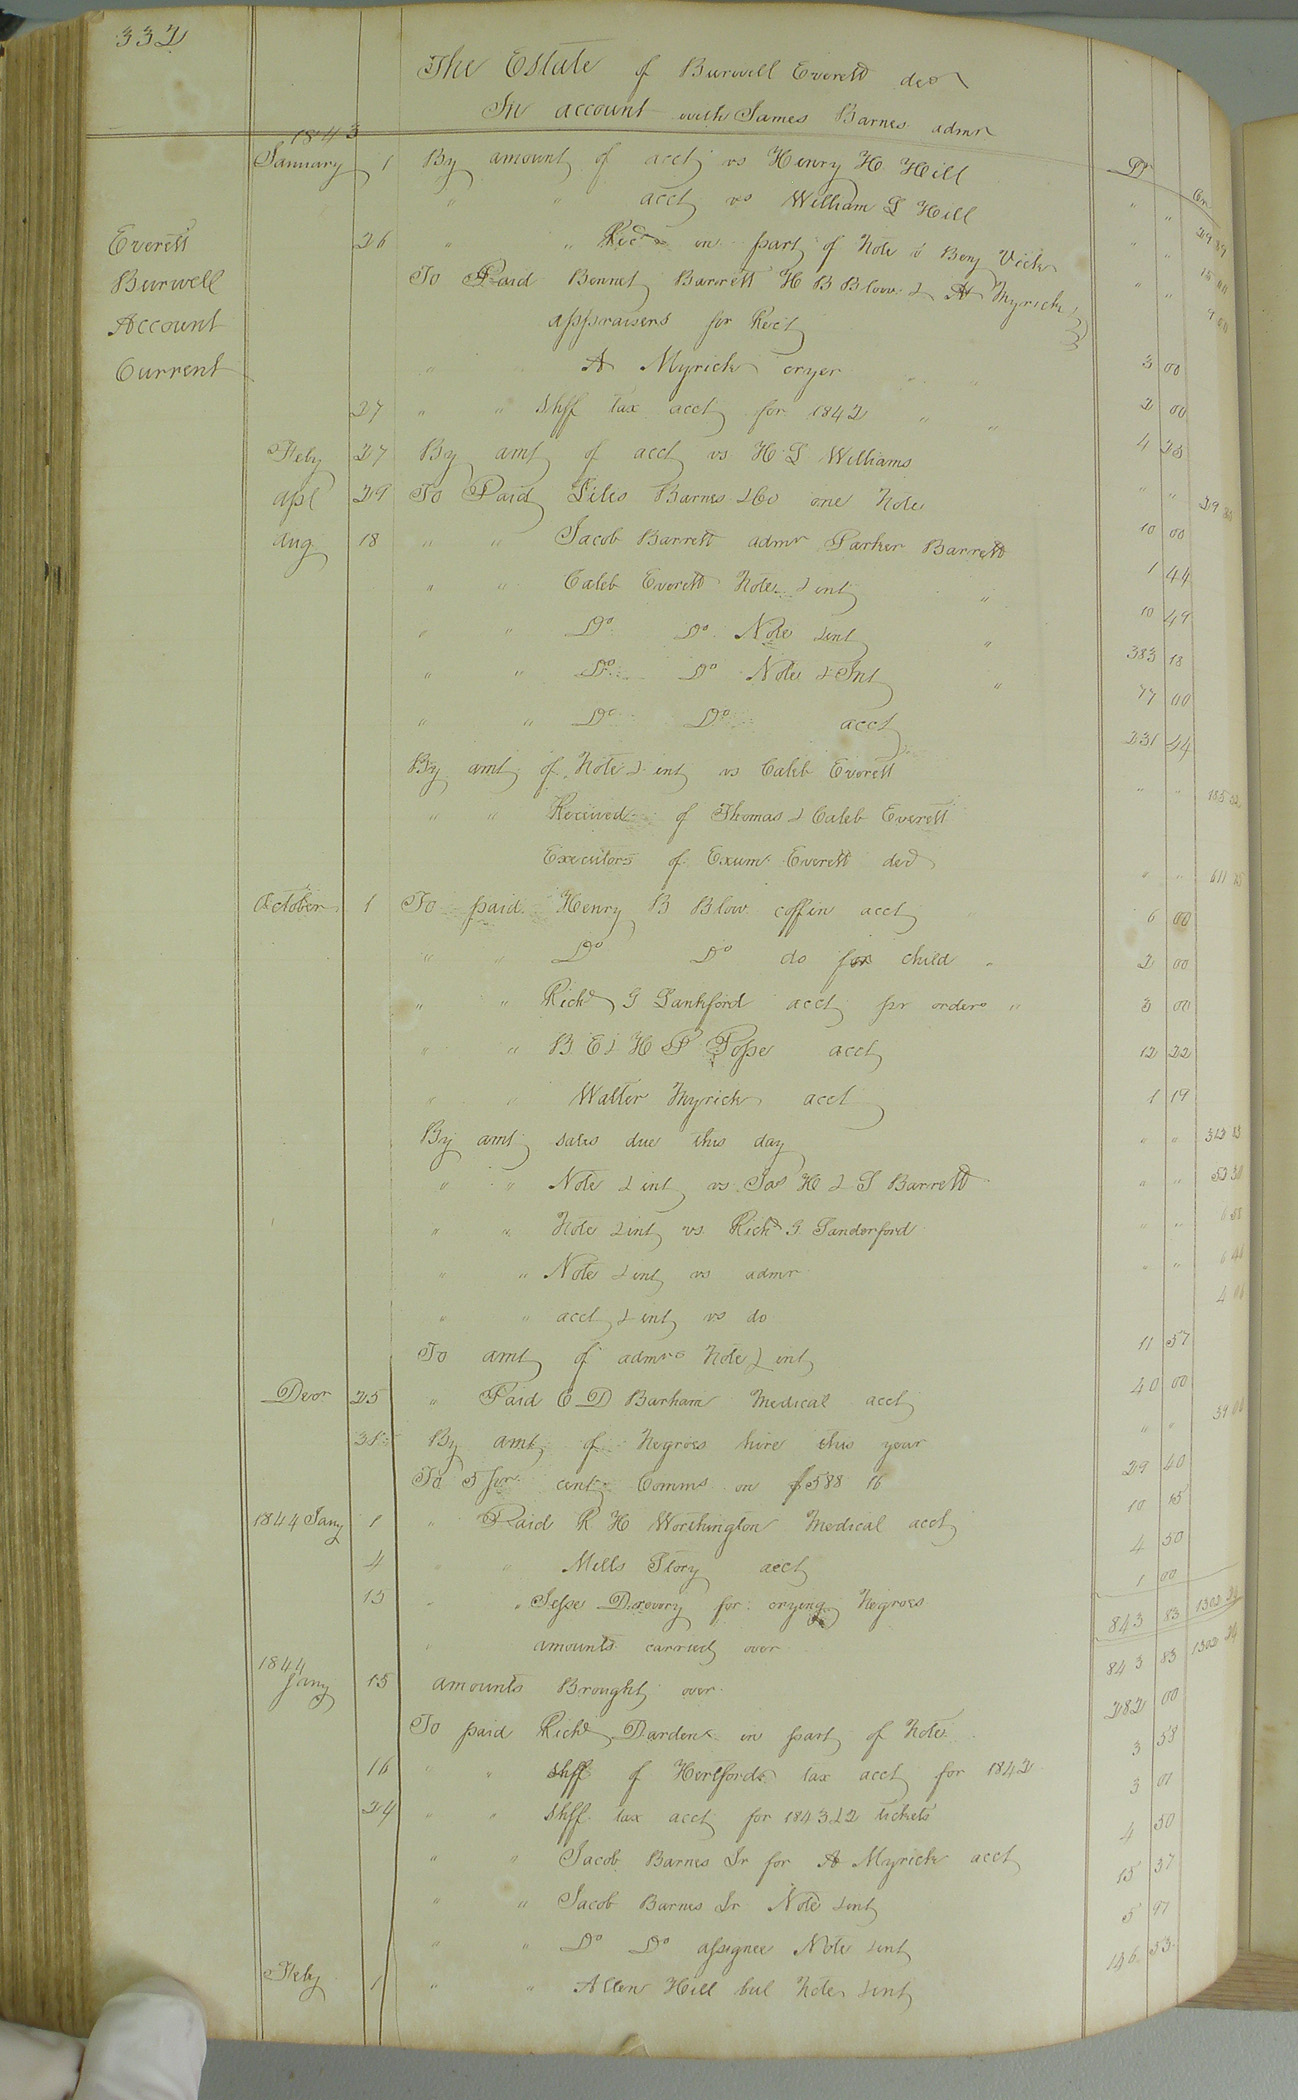 332
The Estate of Burwell Everett decd
In account with James Barnes admr
1843 Dr Cr
January 1 By amount of acct vs Henry H. Hill " " 29 39
" " acct vs William S Hill " " 15 00
26 " " Recd in part of Note o Benj Vick " " 9 00
Everett
Burwell
Account
Current
To Paid Bennet Barrett H B Blow & A Myrick
appraisers for Rect 3 00
" A Myrick cryer " " 2 00
27 " " Shff tax acct for 1842 " " 4 25
Feby 27 By amt of acct vs H S Williams " " 29
apl 29 To Paid Barnes & Co one Note 10 00
aug 18 " " Jacob Barrett admr Parker Barrett 1 44
" " Caleb Everett Note & int " 10 49
" " Do Do Note & int " 383 18
" " Do Do Note & Int " 77 00
" " Do Do acct 231 44
By amt of Note & int vs Caleb Everett " " 185
" " Received of Thomas & Caleb Everett
Executors of Exum Everett decd " " 611
October 1 To paid Henry B Blow coffin acct 6 00
" " Do Do do for child " 2 00
" " Richd G Lankford acct pr order " 3 00
" " B E & H P Pope acct 12 22
" " Walter Myrick acct 1 19
By amt sales due this day " " 312 13
" " Note & int vs Jas H & S Barrett " " 53 30
" " Note & int vs Richd G Sandorford " " 6 58
" " Note & int vs admr " " 6
" " acct & int vs do 4
To amt of admrs Note & int 11 57
Decr 25 " Paid C D Barham Medical acct 40 00
31 By amt of Negroes hire this year " " 39 00
To 5 per cent Comms on $588 16 29 40
1844 Jany 1 " Paid R H Worthington Medical acct 10 15
4 " " Mills Story acct 4 50
15 " " Jesse Drewry for crying Negroes 1 00
" amounts carried over 843 83 1302 24
1844
Jany 15 amounts Brought over 843 83 1302 24
To paid Richd Darden in part of Note 282 00
16 " " Shff of Hertford tax acct for 1842 3 58
24 " " Shff tax acct for 1843 & 2 tickets 3 01
" " Jacob Barnes Jr for A Myrick acct 4 50
" " Jacob Barnes Jr Note & int 15 37
" " Do Do assignee Note & int 5 97
Feby 1 " " Allen Hill bal Note & int 136 53